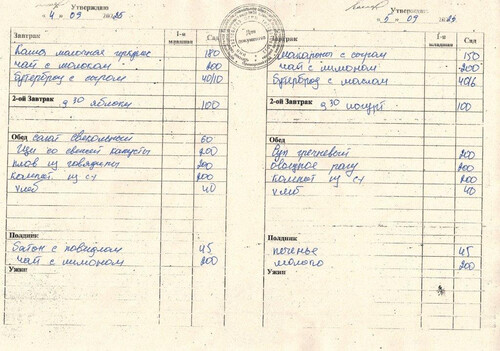 Утверждаю
4 09 2025
Завтрак
1-е младшие
Сад
Каша молочная
180
чай с молоком
200
бутерброд с сыром
40/10
2-ой Завтрак 9 30 яблоки
100
Обед салат свекольный
60
Щи со свежей капусты
200
плов из говядины
200
компот из с/
200
хлеб
40
Полдник
Батон с повидлом
45
чай с лимоном
200
Ужин
Утверждаю
5 09
Завтрак
1-е младшие
Сад
макароны с сыром
150
чай с лимоном
200
Бутерброд с маслом
40/6
2-ой Завтрак 9 30 йогурт
100
Обед
Суп гречневый
200
овощное рагу
200
компот из с/
200
хлеб
40
Полдник
печенье
45
молоко
200
Ужин
Для документов